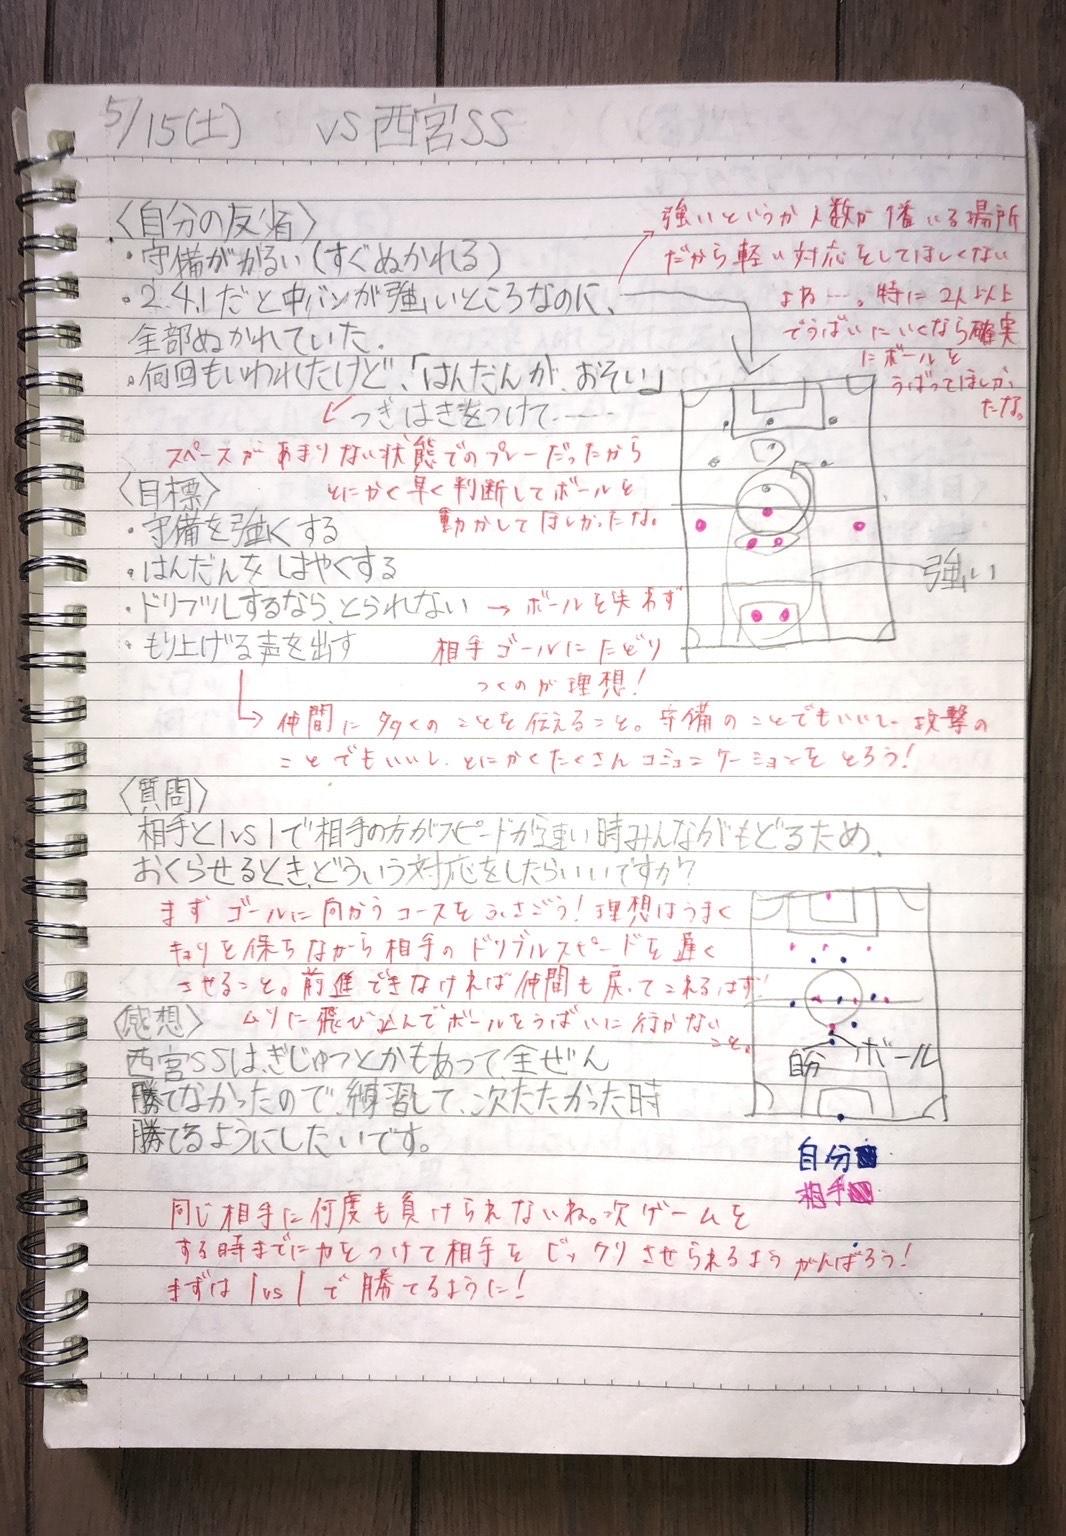 5/15(土) vs 西宮SS
〈自分の反省〉
・守備がかるい(すぐぬかれる)
・2.4.1だと中バンが強いところなのに、
全部ぬかれていた.
。何回もいわれたけど、「はんだんが、おそい」
つぎはきをつけて……
強いというか人数が1番いる場所
だから軽い対応をしてほしくない
よね…。特に2人以上
でうばいにいくなら確実
にボールを
うばってほしかっ
たな。
スペースがあまりない状態でのプレーだったから
とにかく早く判断してボールを
動かしてほしかったな。
〈目標〉
・守備を強くする
・はんだんをはやくする
・ドリブルするなら、とられない → ボールを失わず
相手ゴールにたどり
つくのが理想!
・もり上げる声を出す
仲間に多くのことを伝えること。守備のことでもいいし、攻撃の
ことでもいいし、とにかくたくさんコミュニケーションをとろう!
強い
〈質問〉
相手と1vs1で相手の方がスピードが速い時みんながもどるため、
おくらせるとき、どういう対応をしたらいいですか?
まずゴールに向かうコースをふさごう!理想はうまく
キョリを保ちながら相手のドリブルスピードを遅く
させること。前進できなければ仲間も戻ってこれるはず!
ムリに飛び込んでボールをうばいに行かない
こと。
〈感想〉
西宮SSは、ぎじゅつとかもあって、全ぜん
勝てなかったので、練習して、次たたかった時
勝てるようにしたいです。
自分 ボール
自分
相手
同じ相手に何度も負けられないね。次ゲームを
する時までに力をつけて相手をビックリさせられるようがんばろう!
まずは1vs1で勝てるように!